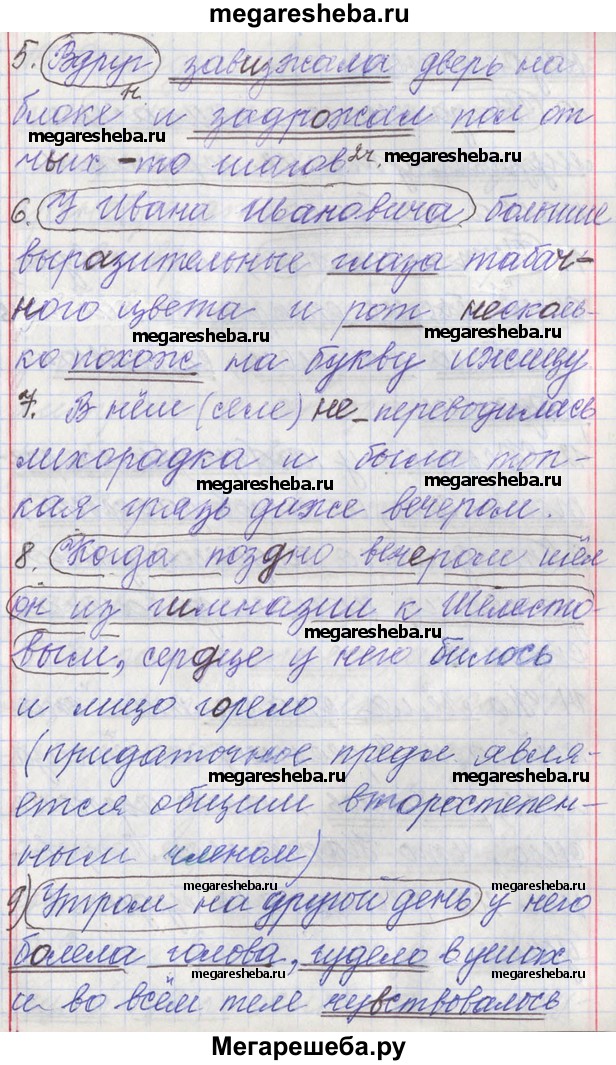 megaresheba.ru
5. Вдруг завизжала дверь на
блоке и задрожал пол от
н.
чьих-то шагов 2ч.
megaresheba.ru megaresheba.ru
megaresheba.ru megaresheba.ru
6. У Ивана Ивановича большие
выразительные глаза табач-
ного цвета и рот несколь-
megaresheba.ru megaresheba.ru
ко похож на букву ижицу.
7. В нём (селе) не переводилась
лихорадка и была топ-
megaresheba.ru megaresheba.ru
кая грязь даже вечером.
8. Когда поздно вечером шёл
он из гимназии к Шелесто-
megaresheba.ru
вым, сердце у него билось
и лицо горело
(придаточное предл явля-
megaresheba.ru megaresheba.ru
ется общим второстепен-
ным членом)
megaresheba.ru megaresheba.ru
9) Утром на другой день у него
болела голова, гудело в ушах
megaresheba.ru megaresheba.ru
и во всём теле чувствовалось
Мегарешеба.ру